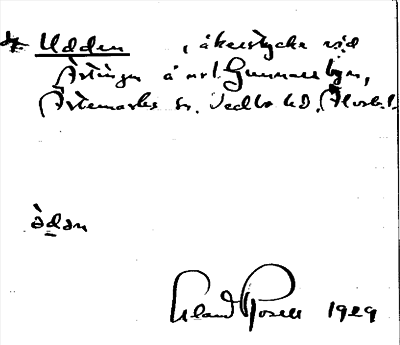 Udden , åkerstycke vid
Årtingen å nrl. Gunnarsbyn,
Årtemarks sn. Vedbo hd. Älvsb. l.
ådan
Erland Rosell 1929